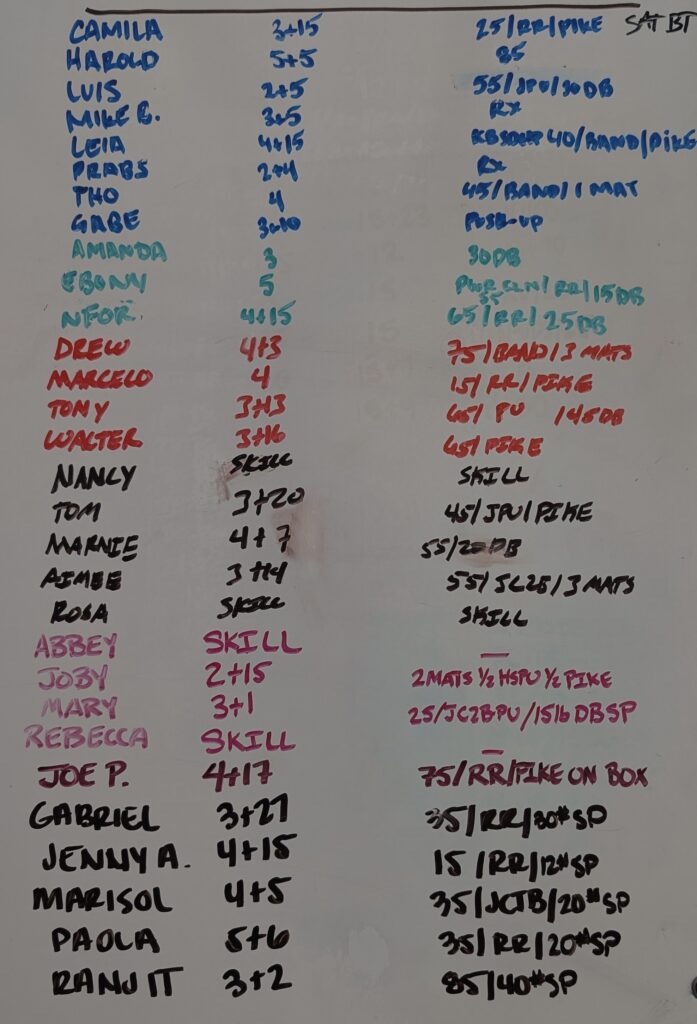 CAMILA 3+15 25/RR/PIKE SAT BT
HAROLD 5+5 85
LUIS 2+5 55/JPU/30DB
MIKE B. 3+5 RX
LEIA 4+15 40/BAND/PIKE
PRABS 2+4 RX
THO 4 45/BAND/1 MAT
GABE 3+10 PUSH-UP
AMANDA 3 30DB
EBONY 5 PWR CLN/RR/15DB
35
NFOR 4+15 65/RR/25DB
DREW 4+3 75/BAND/3 MATS
MARCELO 4 15/RR/PIKE
TONY 3+13 65/PU /45DB
WALTER 3+16 65/PIKE
NANCY SKILL SKILL
TOM 3+20 45/JPU/PIKE
MARNIE 4+7 55/20DB
AIMEE 3+14 55/JC2B/3 MATS
ROSA SKILL SKILL
ABBEY SKILL —
JOBY 2+15 2MATS ½ HSPU ½ PIKE
MARY 3+1 25/JC2BPU/15lb DBSP
REBECCA SKILL —
JOE P. 4+17 75/RR/PIKE ON BOX
GABRIEL 3+27 35/RR/30#SP
JENNY A. 4+15 15/RR/12#SP
MARISOL 4+5 35/JCTB/20#SP
PAOLA 5+6 35/RR/20#SP
RANJIT 3+2 85/40#SP